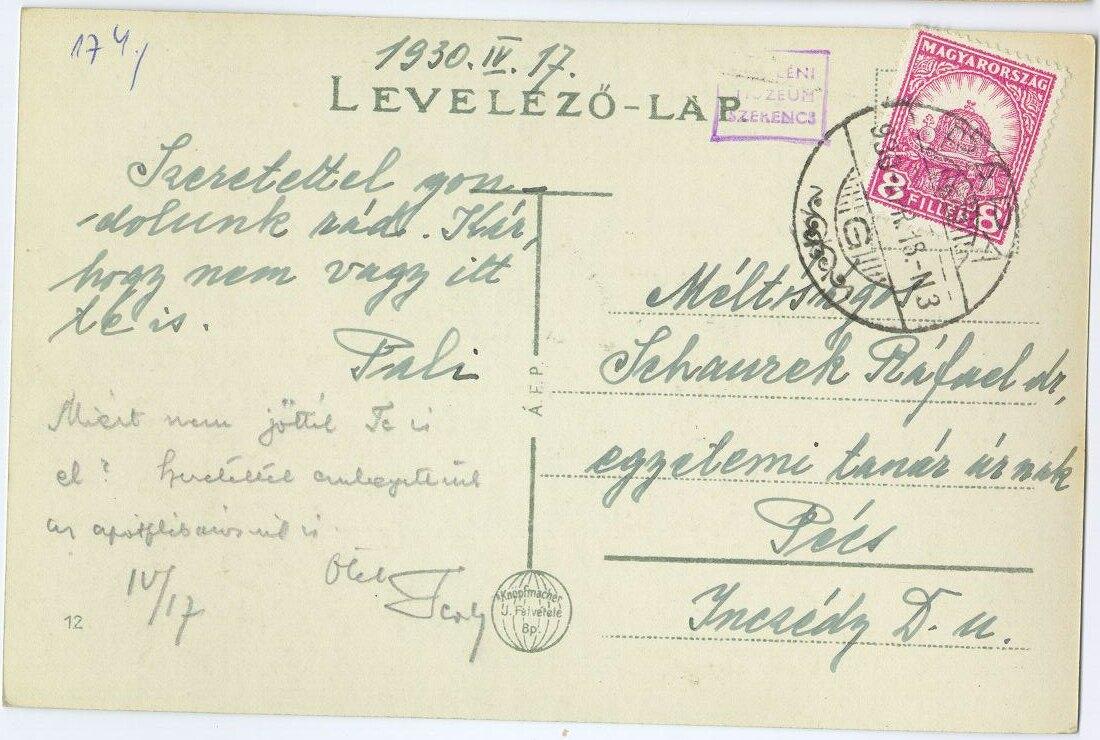 174,
1930. IV. 17.
LEVELEZŐ-LAP.
MÚZEUM
SZERENCS
MAGYARORSZÁG
8 FILLÉR 8
18-N3
G
Szeretettel gon-
dolunk rád. Kár,
hogy nem vagy itt
te is.
Pali
Miért nem jöttél Te is
el?
IV/17
Ölel
12
Á.F.P.
Knopfmacher
J. Felvétele
Bp.
Méltóságos
Schaurek Ráfael dr,
egyetemi tanár úrnak
Pécs
Inczédy D. u.